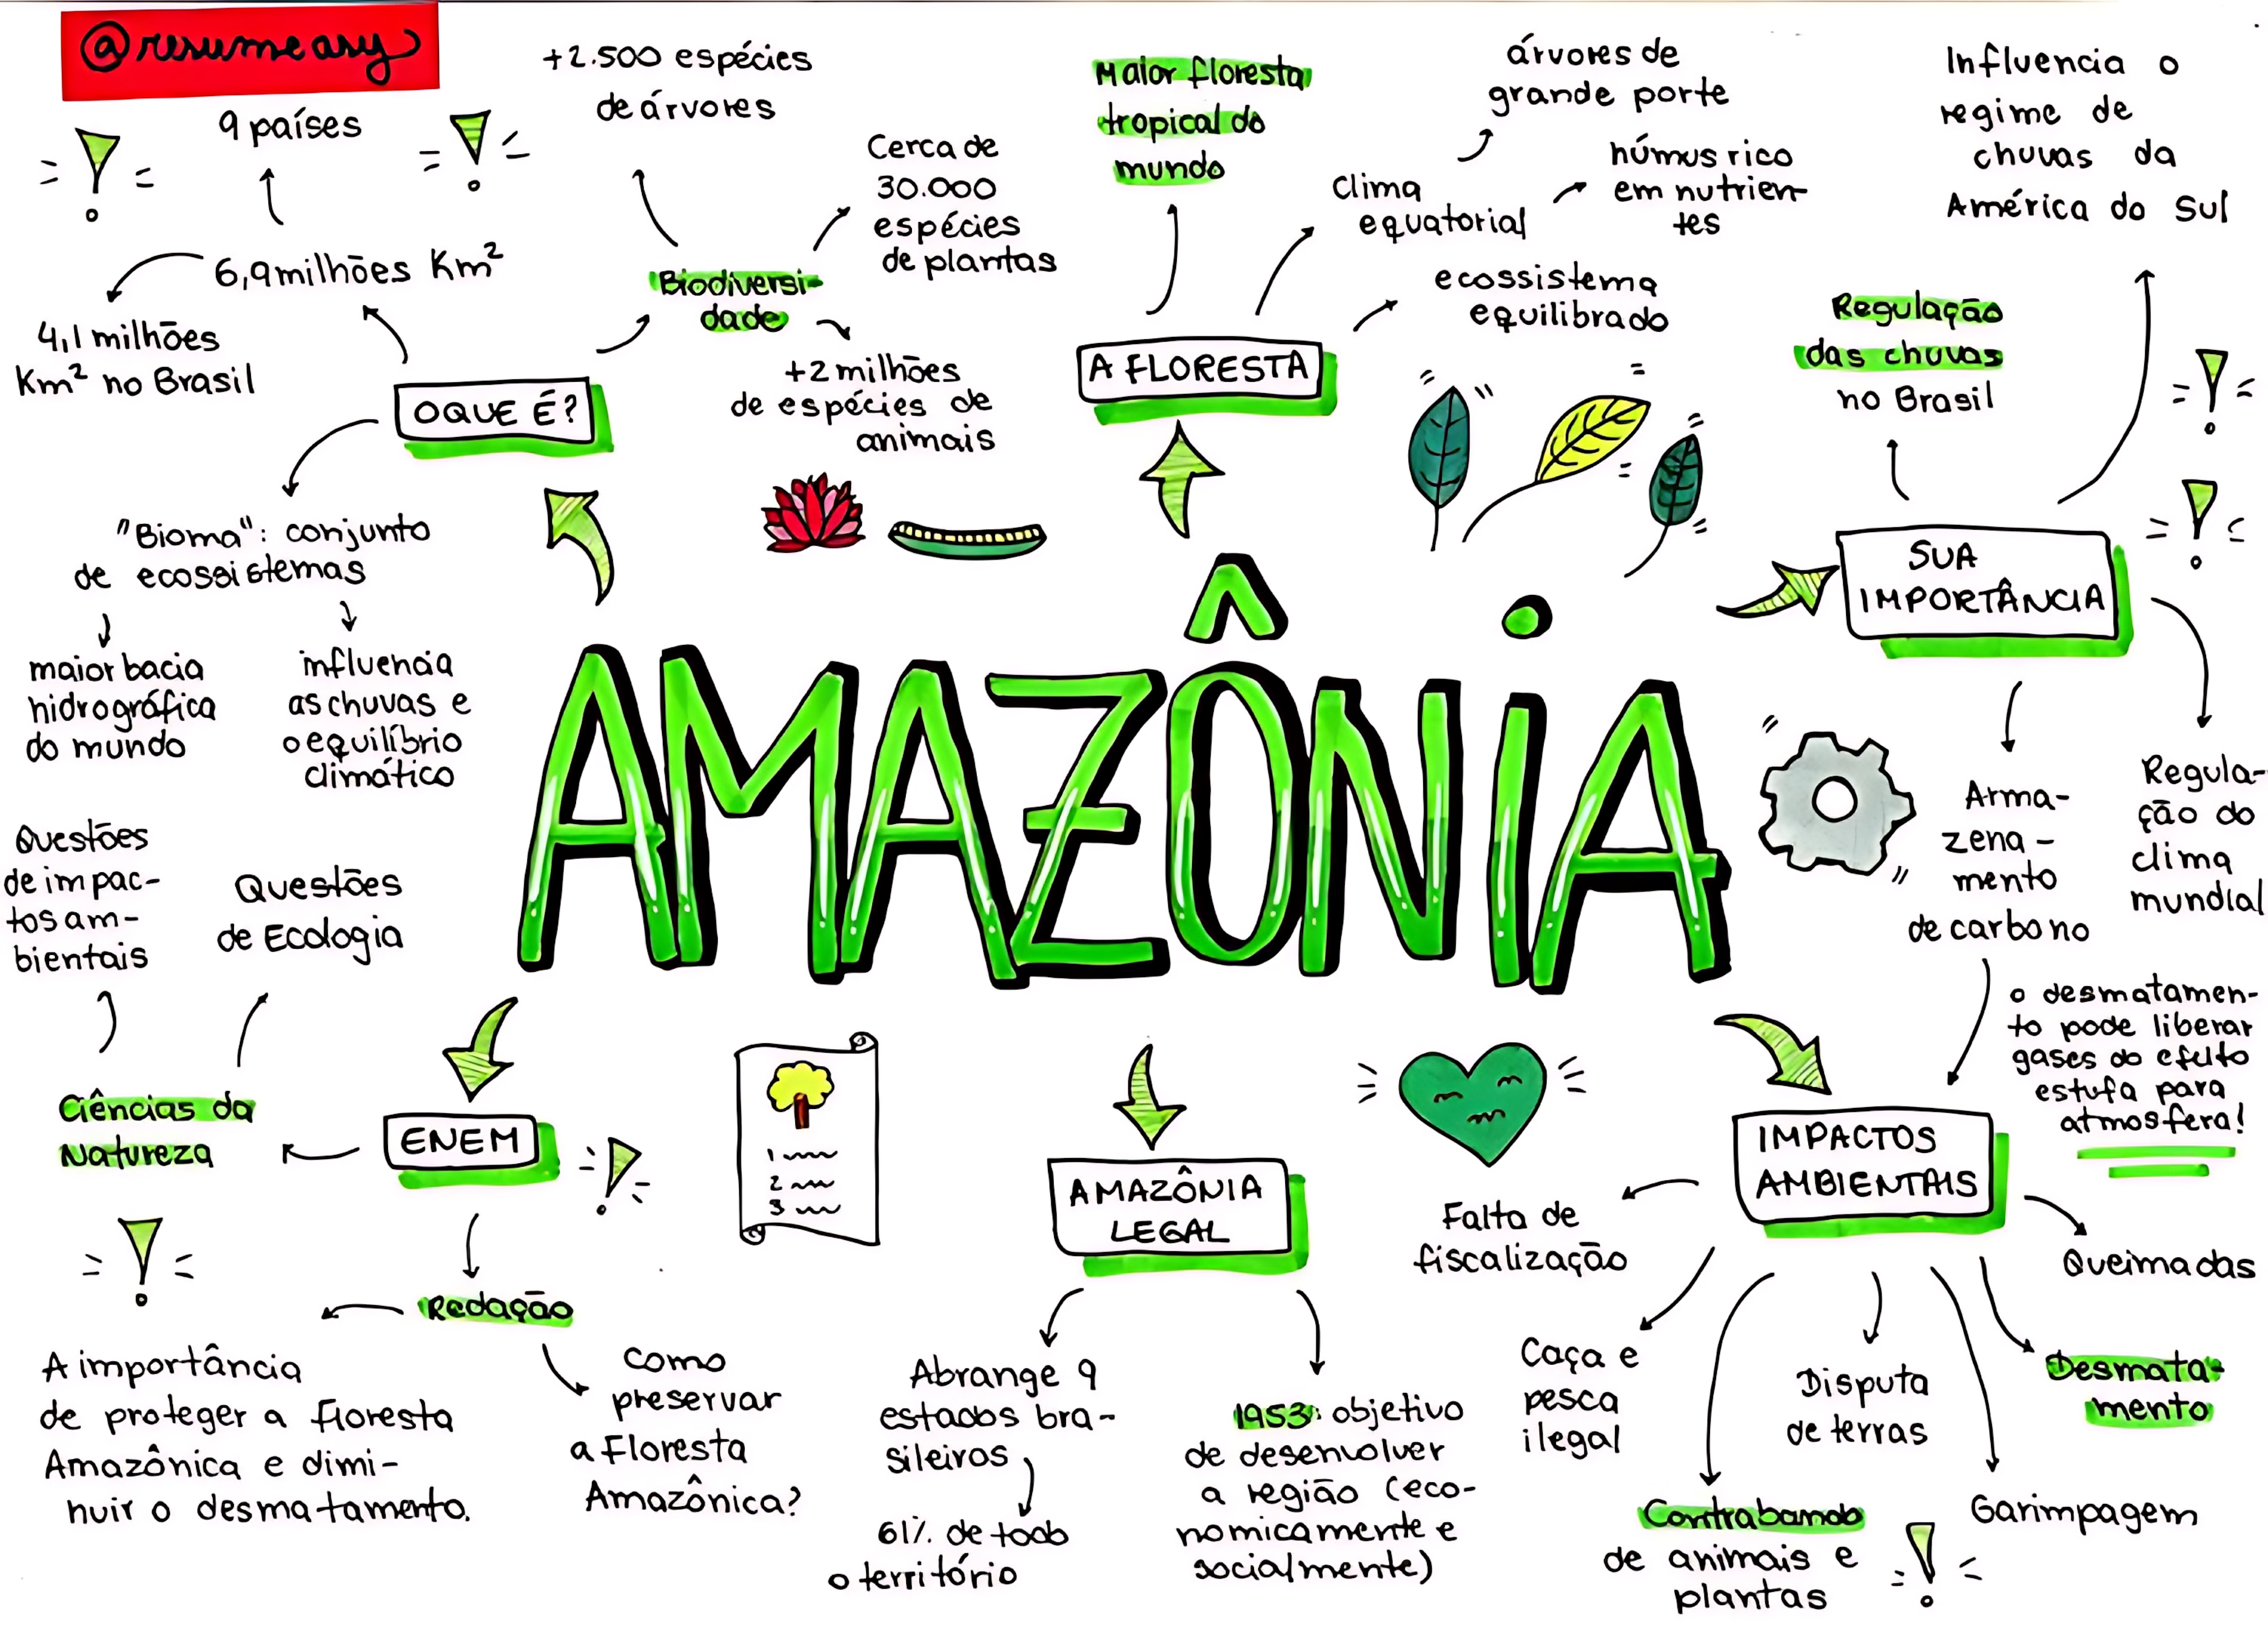 @resumeasy
9 países
6,9 milhões Km²
4,1 milhões
Km² no Brasil
OQUE É?
"Bioma": conjunto
de ecossistemas
maior bacia
hidrográfica
do mundo
influencia
as chuvas e
o equilíbrio
climático
+2.500 espécies
de árvores
Biodiversi-
dade
Cerca de
30.000
espécies
de plantas
+2 milhões
de espécies de
animais
A FLORESTA
Maior floresta
tropical do
mundo
clima
equatorial
árvores de
grande porte
húmus rico
em nutrien-
tes
ecossistema
equilibrado
SUA
IMPORTÂNCIA
Regulação
das chuvas
no Brasil
Influencia o
regime de
chuvas da
América do Sul
Arma-
zena-
mento
de carbono
Regula-
ção do
clima
mundial
o desmatamen-
to pode liberar
gases do efeito
estufa para
atmosfera!
AMAZÔNiA
ENEM
Ciências da
Natureza
Questões
de impac-
tos am-
bientais
Questões
de Ecologia
Redação
A importância
de proteger a floresta
Amazônica e dimi-
nuir o desmatamento.
como
preservar
a Floresta
Amazônica?
1
2
3
AMAZÔNIA
LEGAL
Abrange 9
estados bra-
sileiros
61% de todo
o território
1953: objetivo
de desenvolver
a região (eco-
nomicamente e
socialmente)
IMPACTOS
AMBIENTAIS
Falta de
fiscalização
Caça e
pesca
ilegal
Contrabando
de animais e
plantas
Disputa
de terras
Garimpagem
Desmata-
mento
Queimadas